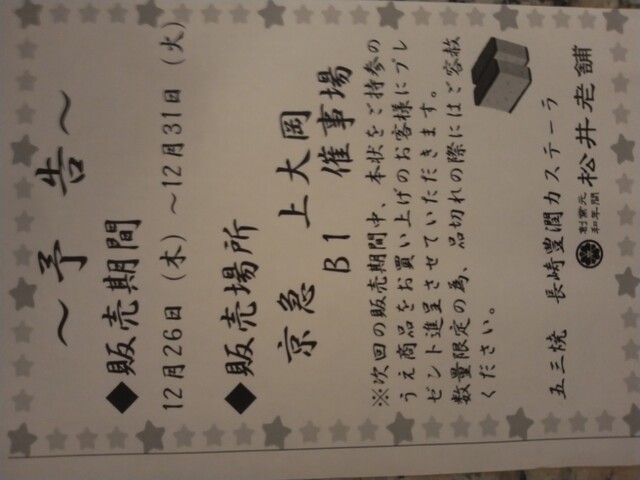 ～予告～
◆販売期間
12月26日（木）～12月31日（火）
◆販売場所
京急 上大岡
B1 催事場
※次回の販売期間中、本状をご持参の
うえ商品をお買い上げのお客様にプレ
ゼント進呈させていただきます。
数量限定の為、品切れの際にはご容赦
ください。
五三焼 長崎豊潤カステーラ
創業元和年間 松井老舗